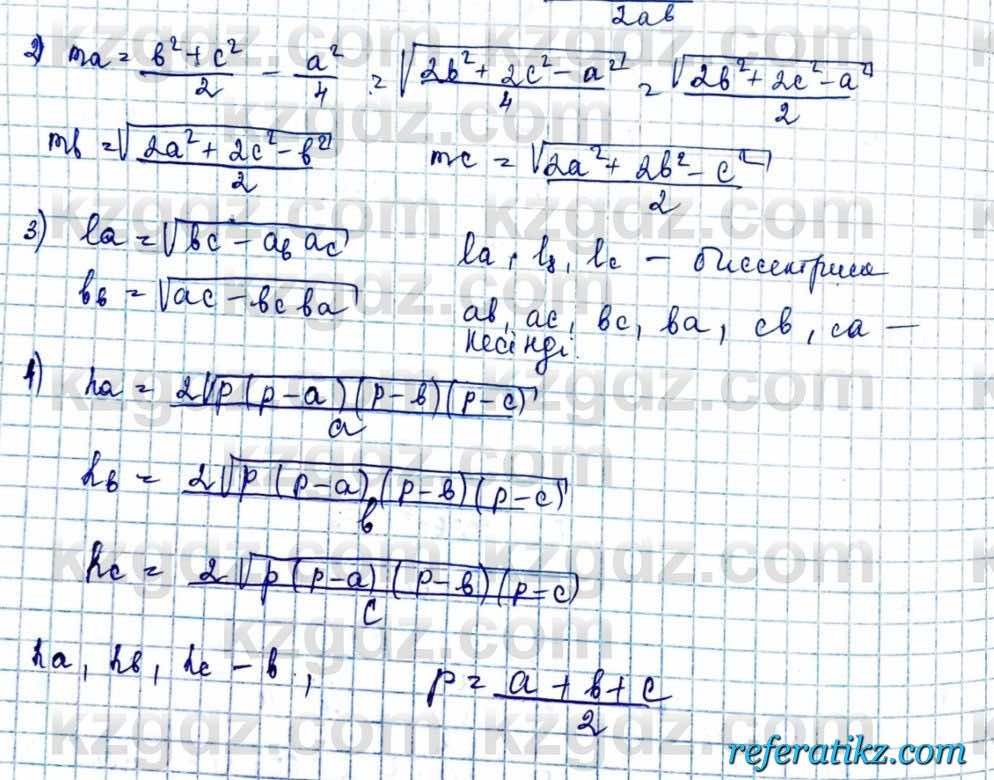 2ав
2) ma = в² + c² / 2 - a² / 4 = √2в² + 2c² - a² / 4 = √2в² + 2c² - a² / 2
mв = √2a² + 2c² - в² / 2 mc = √2a² + 2в² - c² / 2
3) la = √вc - aв ac la, lв, lc - биссектриса
вв = √ac - вc вa aв, ac, вc, вa, cв, ca -
кесінді.
1) ha = 2√p(p-a)(p-в)(p-c) / a
hв = 2√p(p-a)(p-в)(p-c) / в
hc = 2√p(p-a)(p-в)(p-c) / c
ha, hв, hc - в, p = a + в + c / 2
kzgdz.com
referatikz.com